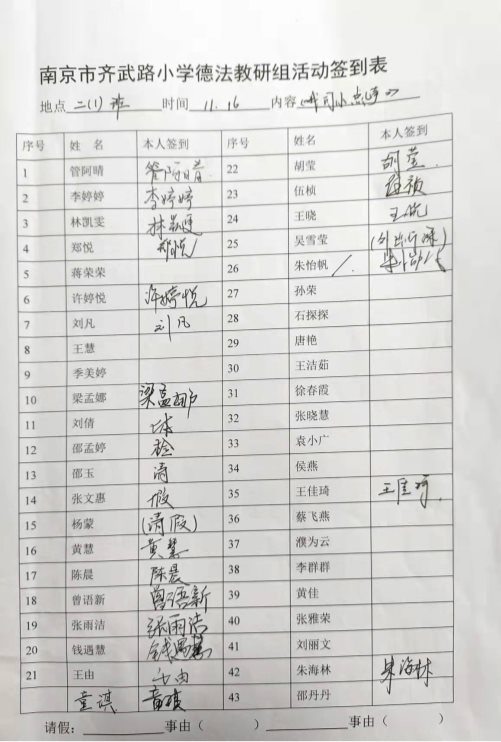 南京市齐武路小学德法教研组活动签到表
地点 二(1)班 时间 11.16 内容
序号 姓 名 本人签到 序号 姓名 本人签到
1 管阿晴 管阿晴 22 胡莹 胡莹
2 李婷婷 李婷婷 23 伍桢 伍祯
3 林凯雯 林凯雯 24 王晓 王晓
4 郑悦 郑悦 25 吴雪莹
5 蒋荣荣 26 朱怡帆
6 许婷悦 许婷悦 27 孙荣
7 刘凡 刘凡 28 石探探
8 王慧 29 唐艳
9 季美婷 30 王洁茹
10 梁孟娜 梁孟娜 31 徐春霞
11 刘倩 体 32 张晓慧
12 邵孟婷 检 33 袁小广
13 邵玉 请 34 侯燕
14 张文惠 假 35 王佳琦 王佳琦
15 杨蒙 (请假) 36 蔡飞燕
16 黄慧 黄慧 37 濮为云
17 陈晨 陈晨 38 李群群
18 曾语新 曾语新 39 黄佳
19 张雨洁 张雨洁 40 张雅荣
20 钱遇慧 钱遇慧 41 刘丽文
21 王由 42 朱海林 朱海林
童淇 43 邵丹丹
请假: 事由( ) 事由( )